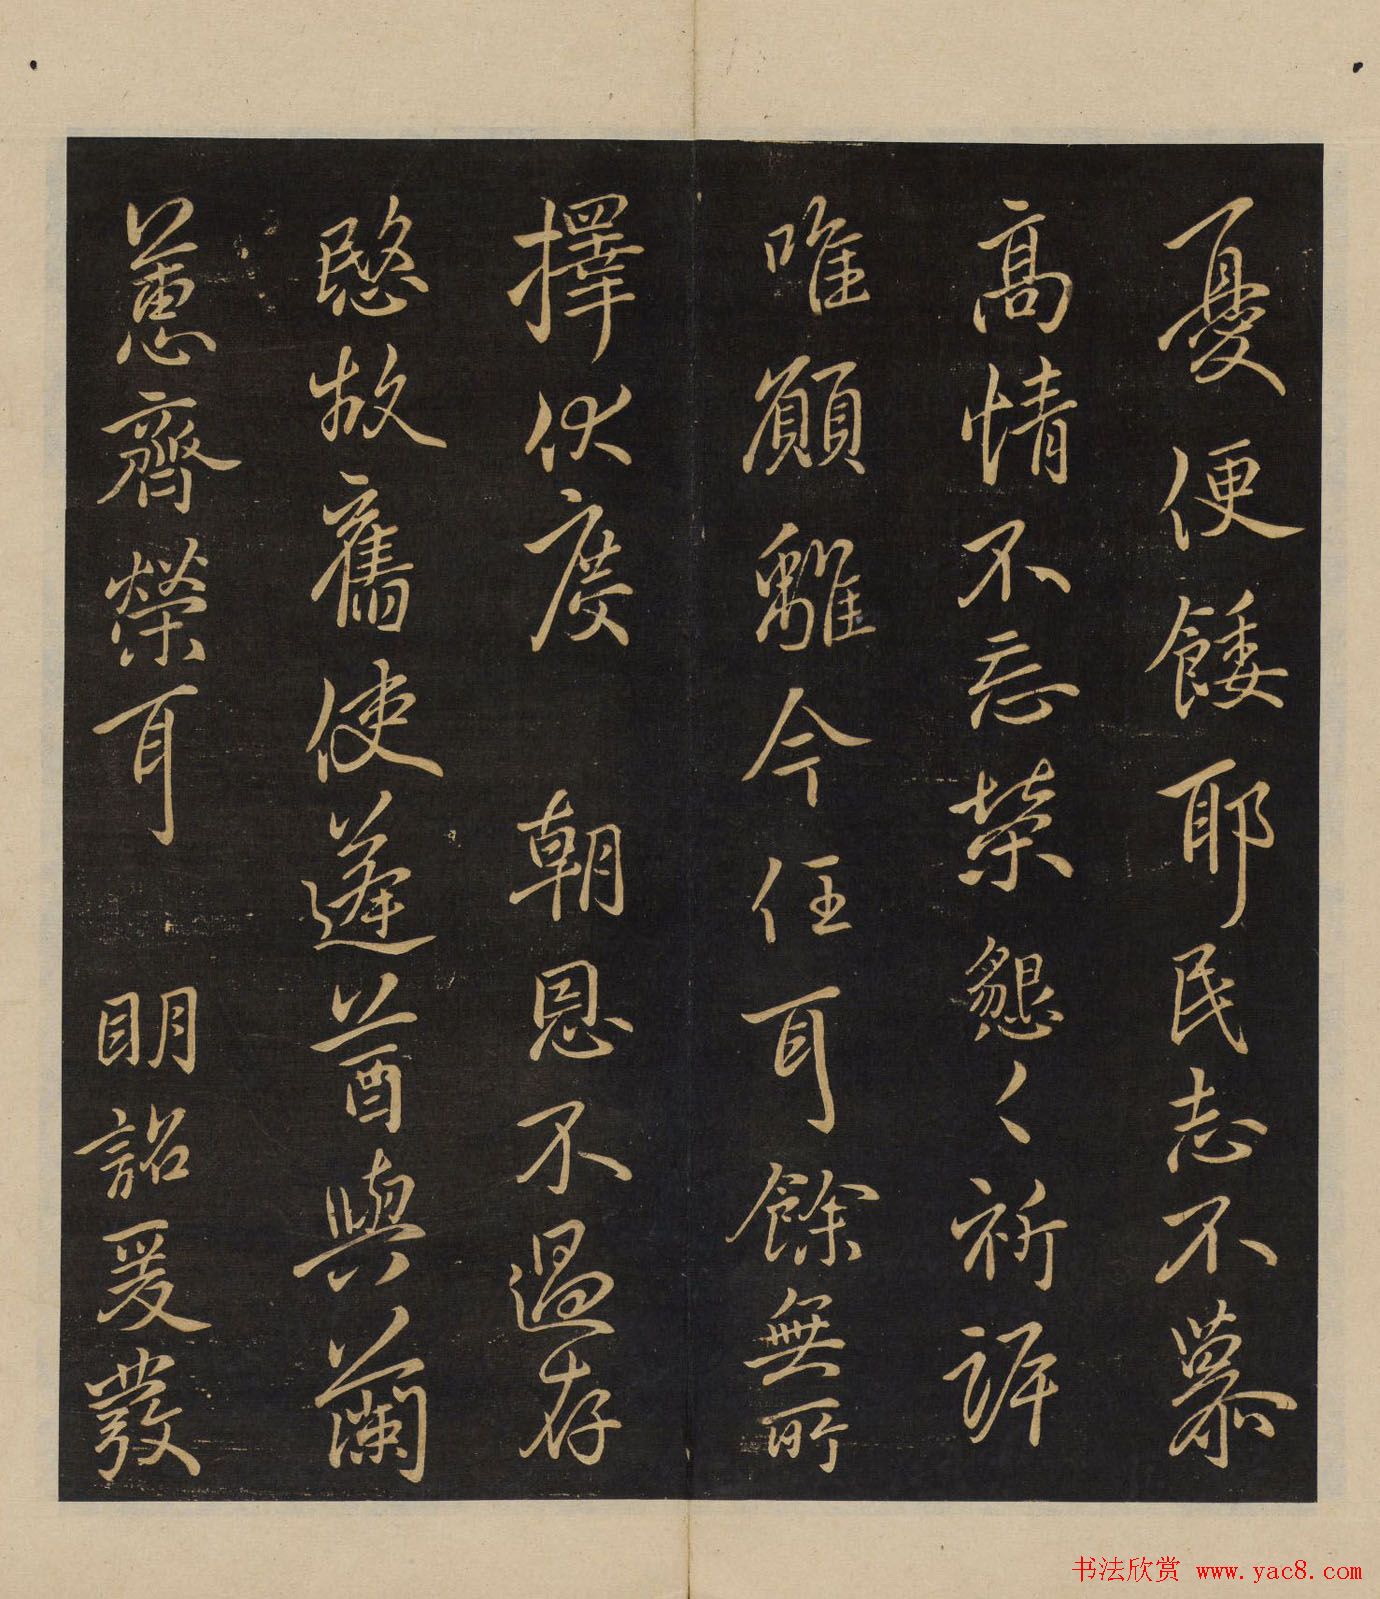 憂便餧耶民志不慕
高情不忘榮懇〻祈訴
唯願離今任耳餘無所
擇伏度 朝恩不過存
愍故舊使蓬蕕與蘭
蕙齊榮耳 明詔爰發
书法欣赏 www.yac8.com